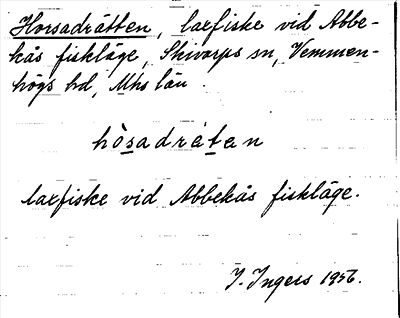 Horsadrätten, laxfiske vid Abbe-
kås fiskläge, Skivarps sn, Vemmen-
högs hd, Mhs län.
hòsadrätan
laxfiske vid Abbekås fiskläge.
I. Ingers 1956.